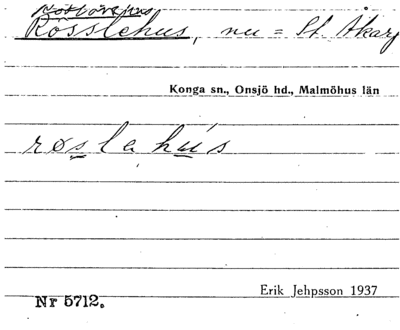 Rösslehus, nu = St. Åkarp
Konga sn., Onsjö hd., Malmöhus län
røslahús
Erik Jehpsson 1937
Nr 5712.